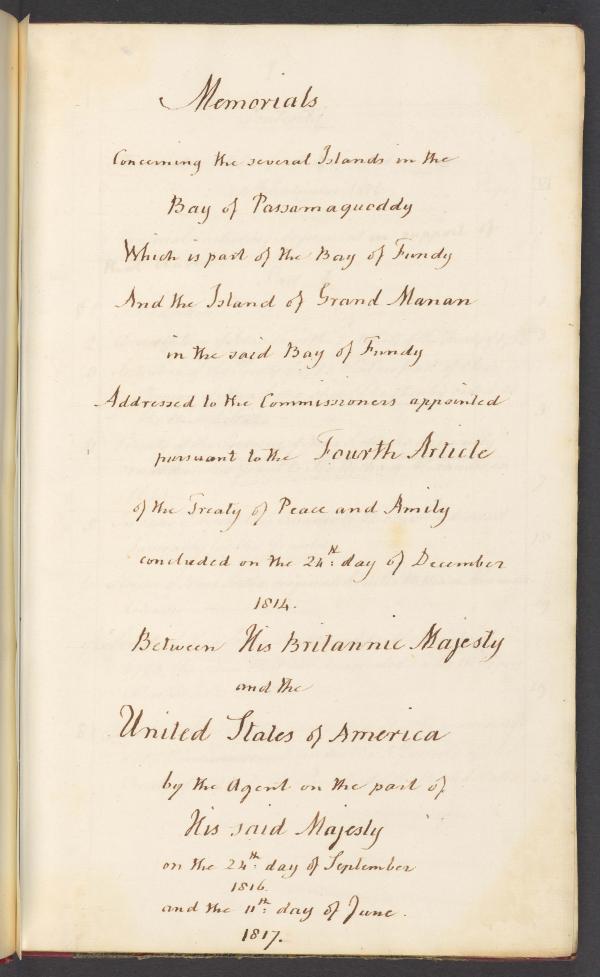 Memorials
Concerning the several Islands in the
Bay of Passamaquoddy
Which is part of the Bay of Fundy
And the Island of Grand Manan
in the said Bay of Fundy
Addressed to the Commissioners appointed
pursuant to the Fourth Article
of the Treaty of Peace and Amity
concluded on the 24th: day of December
1814.
Between His Britannic Majesty
and the
United States of America
by the Agent on the part of
His said Majesty
on the 24th: day of September
1816.
and the 11th: day of June.
1817.